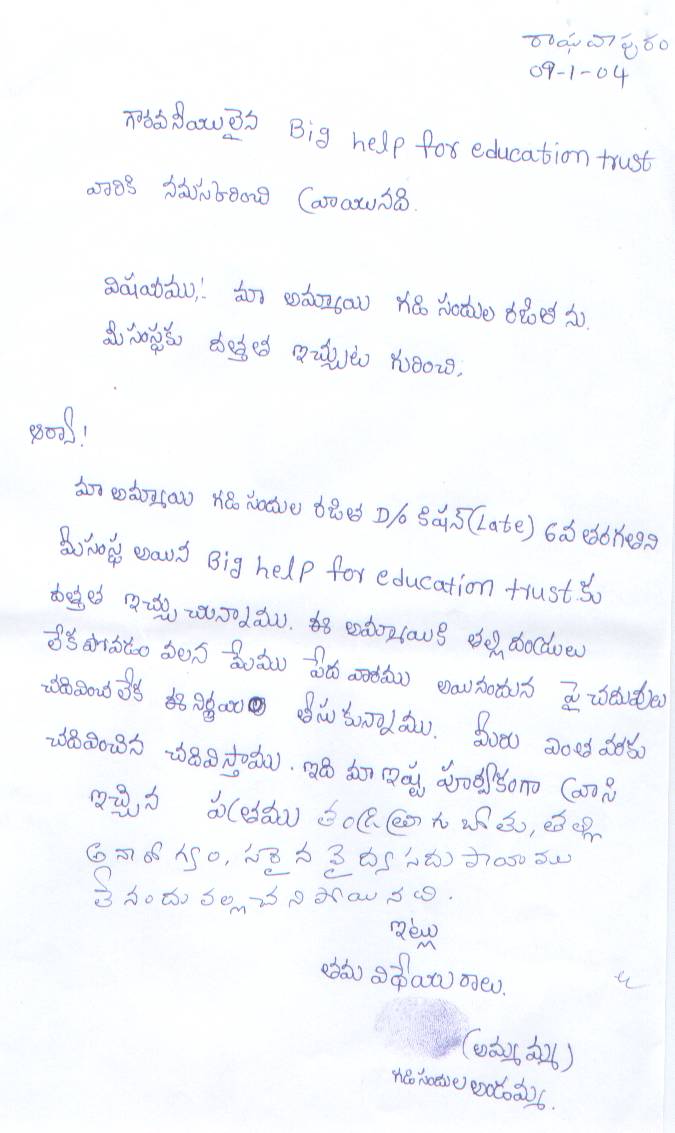 రాఘవాపురం
09-1-04
గౌరవనీయులైన Big help for education trust
వారికి నమస్కరించి వ్రాయునది.
విషయము:- మా అమ్మాయి గడిసందుల రజిత ను.
మీ సంస్థకు దత్తత ఇచ్చుట గురించి.
ఆర్యా!
మా అమ్మాయి గడిసందుల రజిత D/o కిషన్(Late) 6వ తరగతిని
మీసంస్థ అయిన Big help for education trust కు
దత్తత ఇచ్చుచున్నాము. ఈ అమ్మాయికి తల్లిదండ్రులు
లేకపోవడం వలన మేము పేదవారము అయినందున పై చదువులు
చదివించలేక ఈ నిర్ణయం తీసుకున్నాము. మీరు ఎంత వరకు
చదివించిన చదివిస్తాము. ఇది మా ఇష్ట పూర్వకంగా వ్రాసి
ఇచ్చిన పత్రము తండ్రి త్రాగుబోతు, తల్లి
అనారోగ్యం, సరైన వైద్య సదుపాయము
లేనందు వల్ల చనిపోయినది.
ఇట్లు
తమ విధేయురాలు.
(అమ్మమ్మ)
గడిసందుల అండమ్మ.